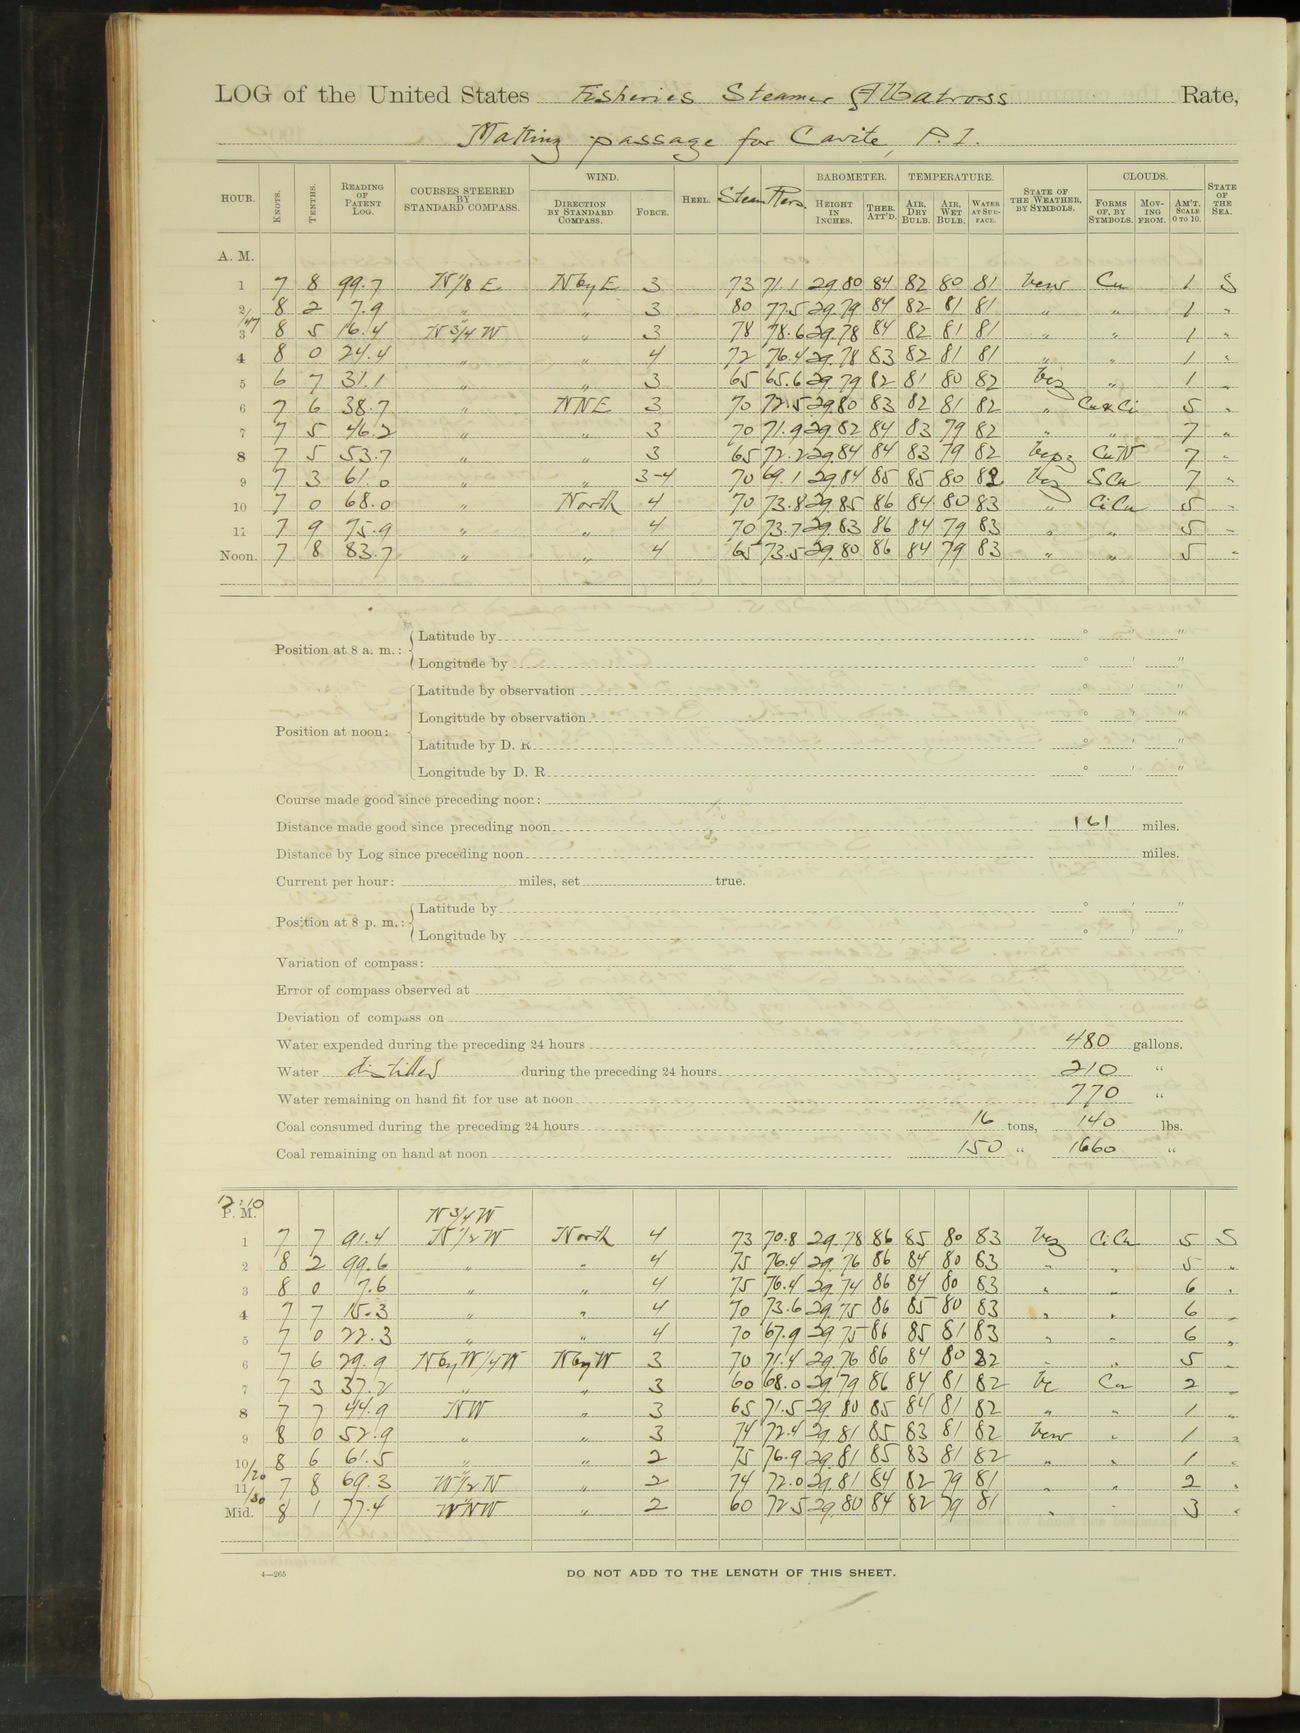 LOG of the United States Fisheries Steamer Albatross Rate,
Making passage for Cavite, P. I.
HOUR. KNOTS. TENTHS. READING OF PATENT LOG. COURSES STEERED BY STANDARD COMPASS. WIND. DIRECTION BY STANDARD COMPASS. FORCE. HEEL. Steam Revs. BAROMETER. HEIGHT IN INCHES. THER. ATT'D. TEMPERATURE. AIR, DRY BULB. AIR, WET BULB. WATER AT SURFACE. STATE OF THE WEATHER, BY SYMBOLS. CLOUDS. FORMS OF, BY SYMBOLS. MOVING FROM. AM'T. SCALE 0 TO 10. STATE OF THE SEA.
A. M.
1 7 8 99.7 N 1/8 E N by E 3 73 71.1 29.80 84 82 80 81 bcw Cu 1 S
2 8 2 7.9 " " 3 80 77.5 29.79 84 82 81 81 " " 1 "
/47
3 8 5 16.4 N 3/4 W " 3 78 78.6 29.78 84 82 81 81 " " 1 "
4 8 0 24.4 " " 4 72 76.4 29.78 83 82 81 81 " " 1 "
5 6 7 31.1 " " 3 65 65.6 29.79 82 81 80 82 bcz " 1 "
6 7 6 38.7 " NNE 3 70 72.5 29.80 83 82 81 82 " Cu & Ci 5 "
7 7 5 46.2 " " 3 70 71.9 29.82 84 83 79 82 " " 7 "
8 7 5 53.7 " " 3 65 72.2 29.84 84 83 79 82 bcpz CuN 7 "
9 7 3 61.0 " " 3-4 70 69.1 29.84 85 85 80 82 bcz SCu 7 "
10 7 0 68.0 " North 4 70 73.8 29.85 86 84 80 83 " CiCu 5 "
11 7 9 75.9 " " 4 70 73.7 29.83 86 84 79 83 " " 5 "
Noon. 7 8 83.7 " " 4 65 73.5 29.80 86 84 79 83 " " 5 "
Position at 8 a. m.: Latitude by ° " "
Longitude by ° ' "
Position at noon: Latitude by observation ° ' "
Longitude by observation ° ' "
Latitude by D. R. ° ' "
Longitude by D. R. ° ' "
Course made good since preceding noon:
Distance made good since preceding noon 161 miles.
Distance by Log since preceding noon miles.
Current per hour: miles, set true.
Position at 8 p. m.: Latitude by ° ' "
Longitude by ° ' "
Variation of compass:
Error of compass observed at
Deviation of compass on
Water expended during the preceding 24 hours 480 gallons.
Water distilled during the preceding 24 hours 210 "
Water remaining on hand fit for use at noon 770 "
Coal consumed during the preceding 24 hours 16 tons, 140 lbs.
Coal remaining on hand at noon 150 " 1660 "
12:10
P. M. N 3/4 W
1 7 7 91.4 N 1/2 W North 4 73 70.8 29.78 86 85 80 83 bcz CiCu 5 S
2 8 2 99.6 " " 4 75 76.4 29.76 86 84 80 83 " " 5 "
3 8 0 7.6 " " 4 75 76.4 29.74 86 84 80 83 " " 6 "
4 7 7 15.3 " " 4 70 73.6 29.75 86 85 80 83 " " 6 "
5 7 0 22.3 " " 4 70 67.9 29.75 86 85 81 83 " " 6 "
6 7 6 29.9 N by W 1/4 W N by W 3 70 71.4 29.76 86 84 80 82 " " 5 "
7 7 3 37.2 " " 3 60 68.0 29.79 86 84 81 82 bc Cu 2 "
8 7 7 44.9 NW " 3 65 71.5 29.80 85 84 81 82 " " 1 "
9 8 0 52.9 " " 3 74 72.4 29.81 85 83 81 82 bcw " 1 "
10 8 6 61.5 " " 2 75 76.9 29.81 85 83 81 82 " " 1 "
/20
11 7 8 69.3 W 1/2 N " 2 74 72.0 29.81 84 82 79 81 " " 2 "
/30
Mid. 8 1 77.4 WNW " 2 60 72.5 29.80 84 82 79 81 " " 3 "
4—265
DO NOT ADD TO THE LENGTH OF THIS SHEET.